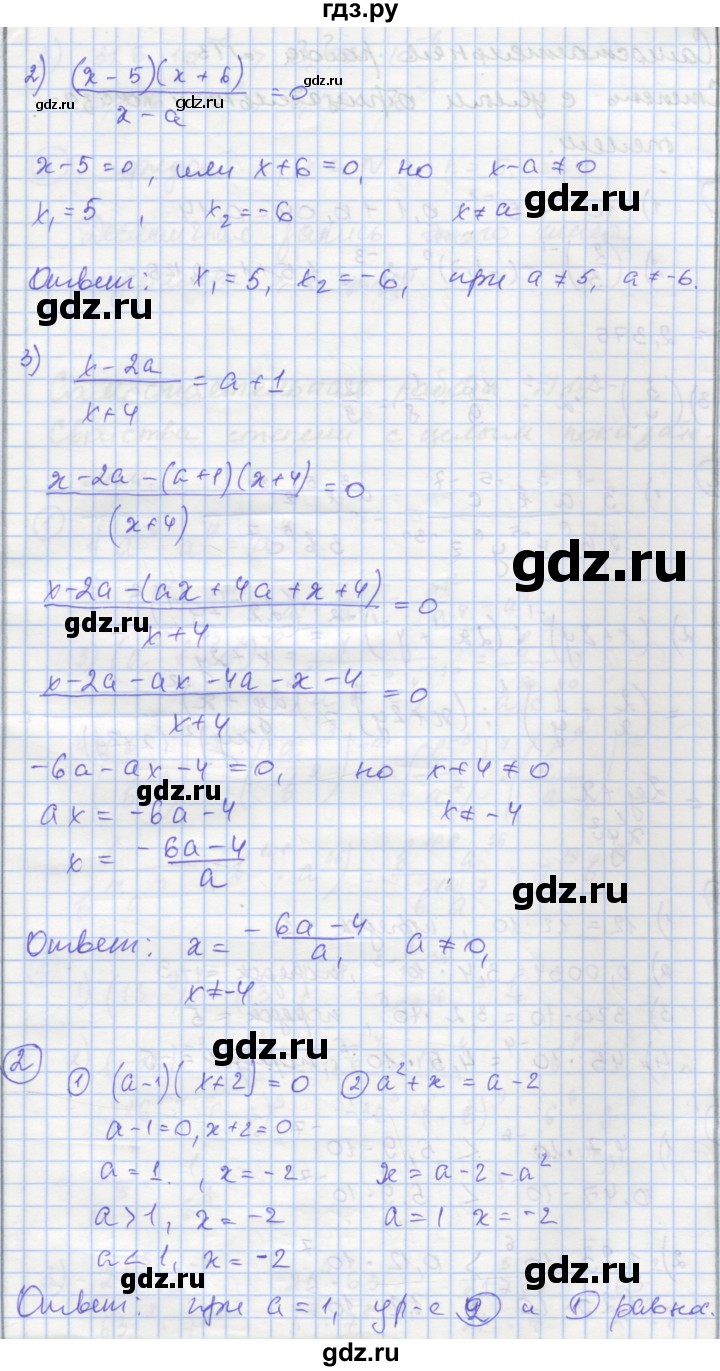 гдз.ру
2) (x - 5)(x + 6) / x - a = 0
gdz.ru gdz.ru
gdz.ru gdz.ru
x - 5 = 0, или x + 6 = 0, но x - a ≠ 0
x₁ = 5, x₂ = -6 x ≠ a gdz.ru
Ответ: x₁ = 5, x₂ = -6, при a ≠ 5, a ≠ -6.
gdz.ru gdz.ru
3) x - 2a / x + 4 = a + 1
x - 2a - (a + 1)(x + 4) / (x + 4) = 0
gdz.ru
x - 2a - (ax + 4a + x + 4) / x + 4 = 0
gdz.ru
x - 2a - ax - 4a - x - 4 / x + 4 = 0
-6a - ax - 4 = 0, но x + 4 ≠ 0
gdz.ru
ax = -6a - 4 x ≠ -4
x = -6a - 4 / a
gdz.ru
Ответ: x = -6a - 4 / a, a ≠ 0,
gdz.ru
x ≠ -4
2 1 (a - 1)(x + 2) = 0 2 a² + x = a - 2
gdz.ru
a - 1 = 0, x + 2 = 0
a = 1, x = -2 x = a - 2 - a²
a > 1, x = -2 a = 1 x = -2
a < 1, x = -2
gdz.ru gdz.ru
Ответ: при a = 1, ур-е 2 и 1 равны.